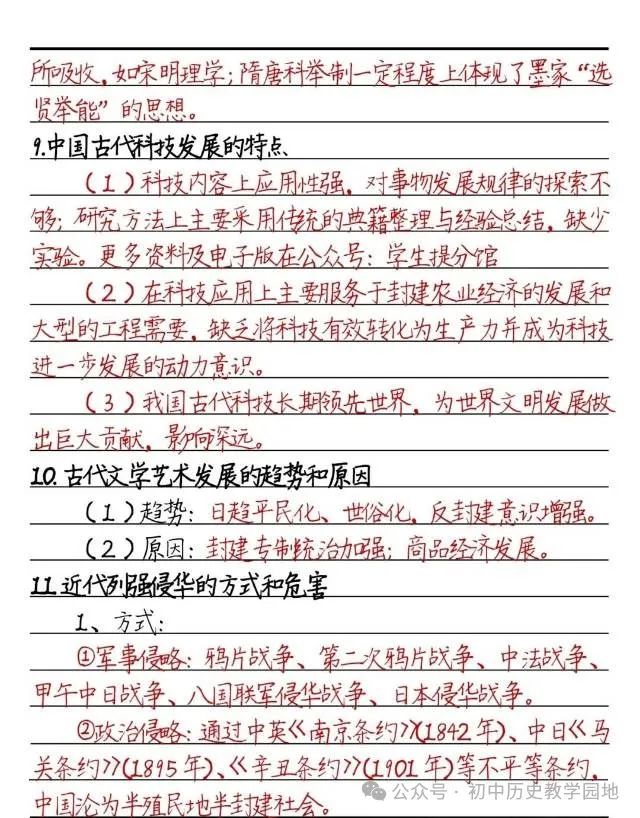 所吸收,如宋明理学;隋唐科举制一定程度上体现了墨家“选
贤举能”的思想。
9.中国古代科技发展的特点
(1)科技内容上应用性强,对事物发展规律的探索不
够;研究方法上主要采用传统的典籍整理与经验总结,缺少
实验。更多资料及电子版在公众号:学生提分馆
(2)在科技应用上主要服务于封建农业经济的发展和
大型的工程需要,缺乏将科技有效转化为生产力并成为科技
进一步发展的动力意识。
(3)我国古代科技长期领先世界,为世界文明发展做
出巨大贡献,影响深远。
10.古代文学艺术发展的趋势和原因
(1)趋势:日趋平民化、世俗化,反封建意识增强。
(2)原因:封建专制统治加强;商品经济发展。
11.近代列强侵华的方式和危害
1、方式:
①军事侵略:鸦片战争、第二次鸦片战争、中法战争、
甲午中日战争、八国联军侵华战争、日本侵华战争。
②政治侵略:通过中英《南京条约》(1842年)、中日《马
关条约》(1895年)、《辛丑条约》(1901年)等不平等条约,
中国沦为半殖民地半封建社会。
公众号·初中历史教学园地